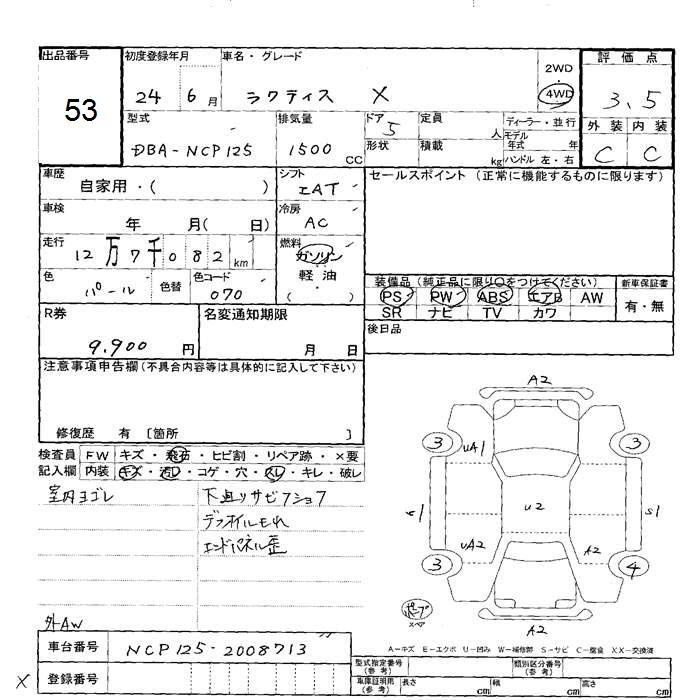 出品番号 53
初度登録年月 24 6月
車名・グレード ラクティス X
2WD
4WD
評価点 3.5
外装 内装
C C
型式 DBA-NCP125
排気量 1500 CC
ドア 5
形状
定員 人
積載 kg
ディーラー・並行
モデル年式 年
ハンドル 左・右
車歴 自家用・( )
シフト IAT
セールスポイント (正常に機能するものに限ります)
車検 年 月( 日)
冷房 AC
走行 12万7千082km
燃料 ガソリン
軽油
( )
色 パール
色替
色コード 070
装備品(純正品に限り○をつけてください)
PS PW ABS エアB AW
SR ナビ TV カワ
新車保証書
有・無
R券 9,900 円
名変通知期限 月 日
後日品
注意事項申告欄(不具合内容等は具体的に記入して下さい)
修復歴 有 [箇所 ]
検査員記入欄
FW キズ・飛石・ヒビ割・リペア跡・×要
内装 キズ・汚レ・コゲ・穴・スレ・キレ・破レ
室内ヨゴレ
下廻りサビフショフ
デフオイルモれ
エンドパネル歪
外AW
A2
3 3
UA1
U2
S1
UA2 A2
3 4
スペア
A2
A-キズ E-エクボ U-凹み W-補修跡 S-サビ C-腐食 XX-交換済
車台番号 NCP125-2008713
X 登録番号
型式指定番号(参考)
類別区分番号(参考)
車庫証明用(参考) 長さ cm 幅 cm 高さ cm